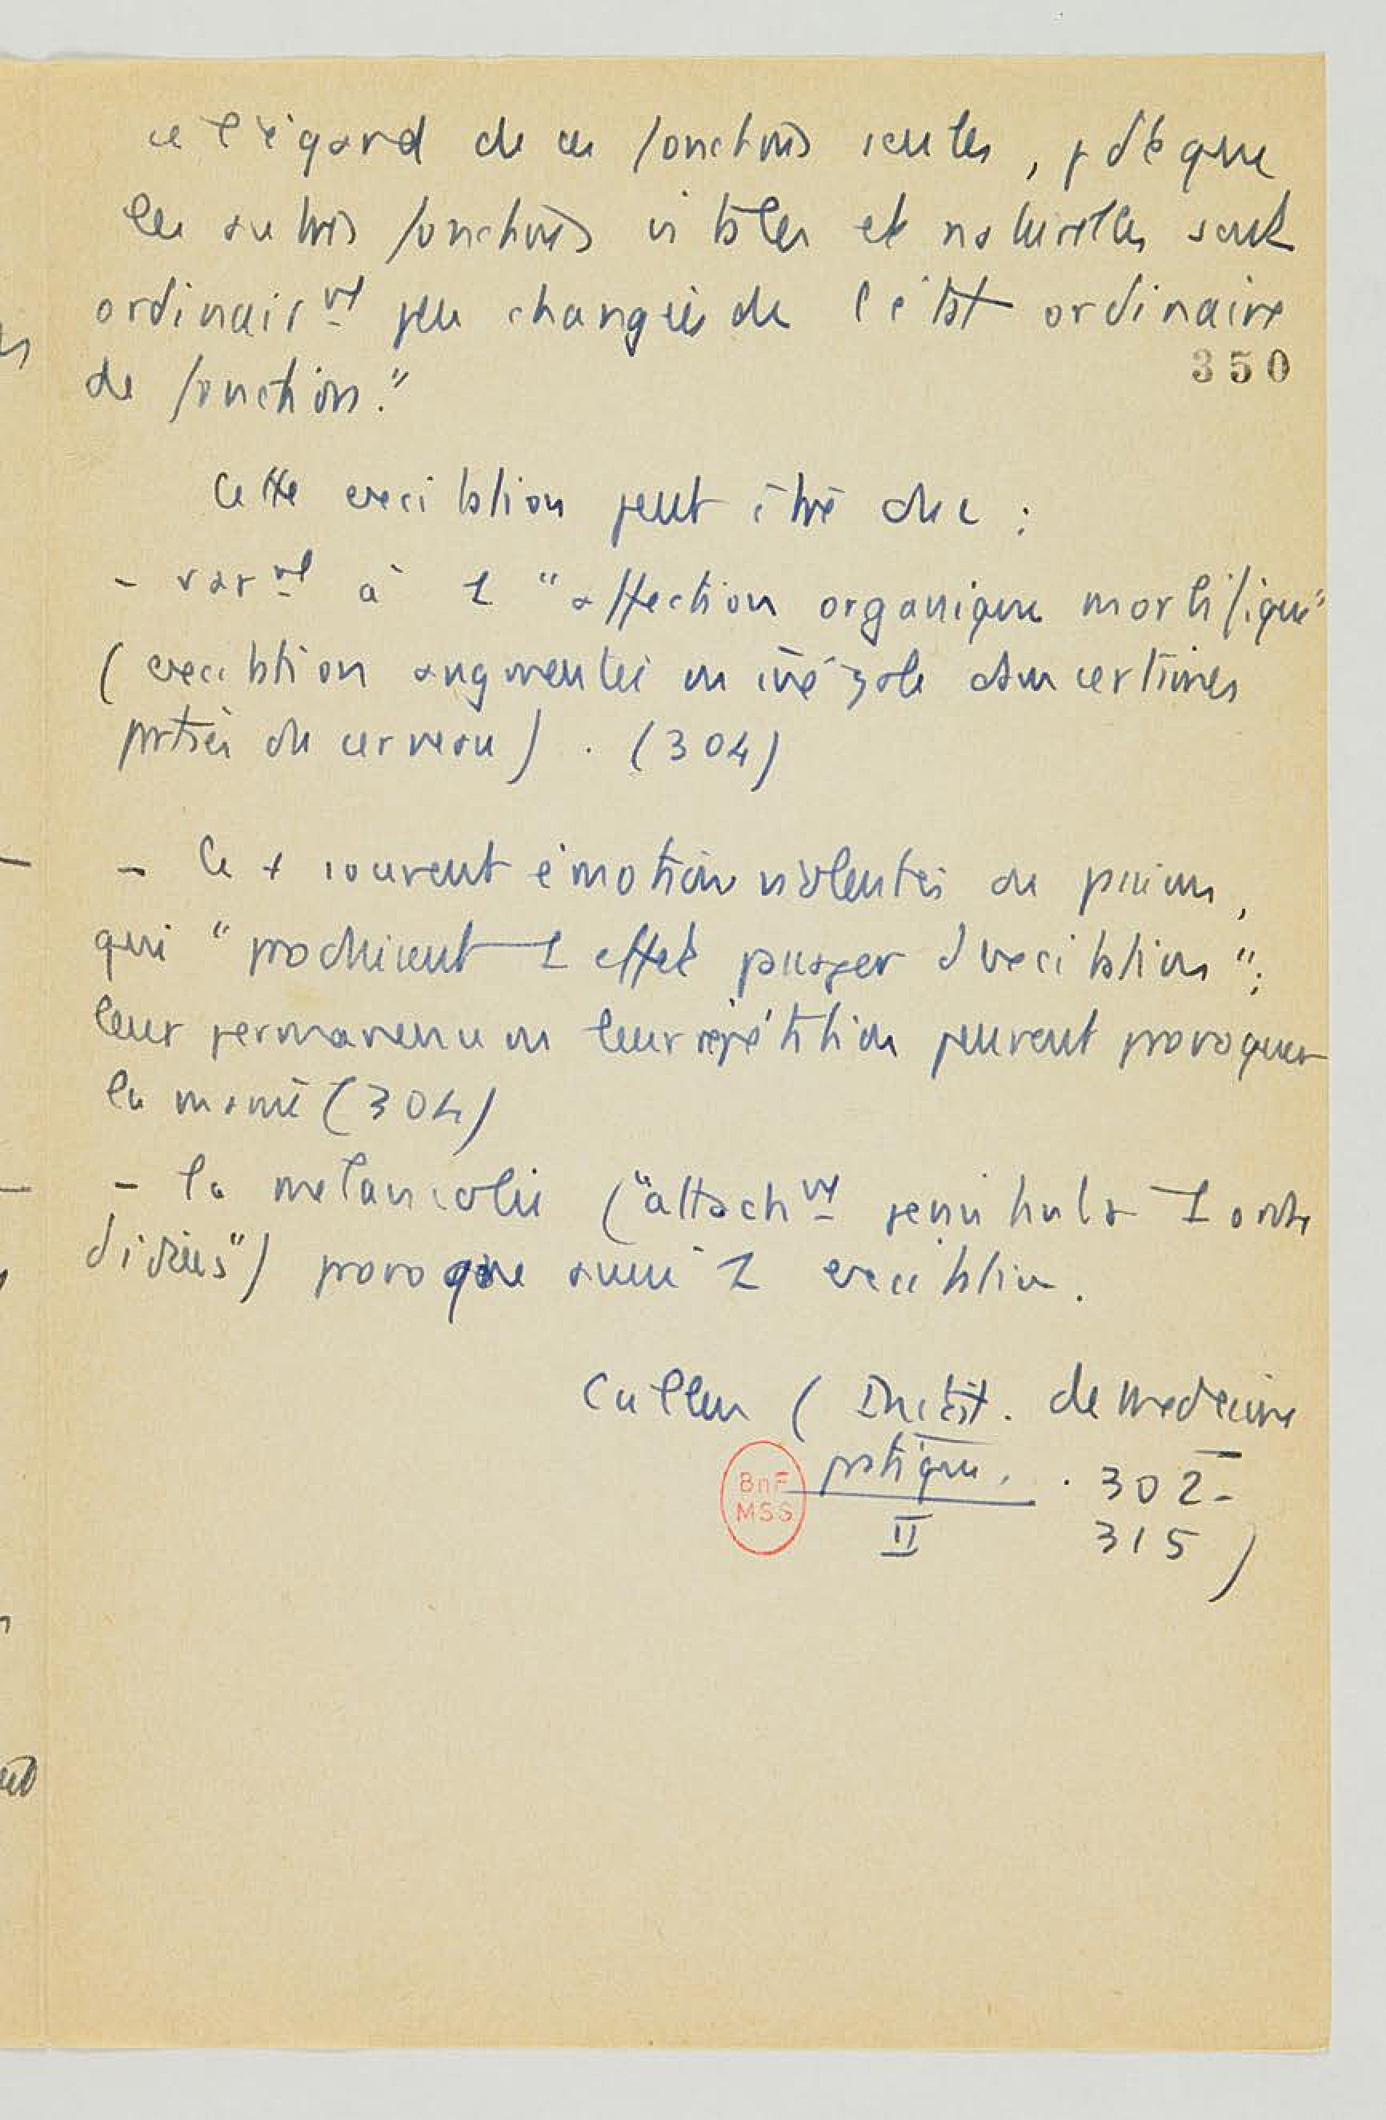 à l'égard de ces fonctions seules, pdt que
les autres fonctions vitales et naturelles sont
ordinairmt peu changées de l'état ordinaire
350
de fonction."
Cette excitation peut être due :
- rarmt à 1 "affection organique morbifique"
(excitation augmentée ou inégale dans certaines
parties du cerveau). (304)
- le + souvent émotions violentes ou passions,
qui "produisent 1 effet passager d'excitation";
leur permanence ou leur répétition peuvent provoquer
la manie (304)
- la mélancolie ("attachmt à 1 ordre
d'idées") provoque aussi 1 excitation.
Cullen (Instit. de médecine
pratique. . 302-
II 315)
BnF
MSS